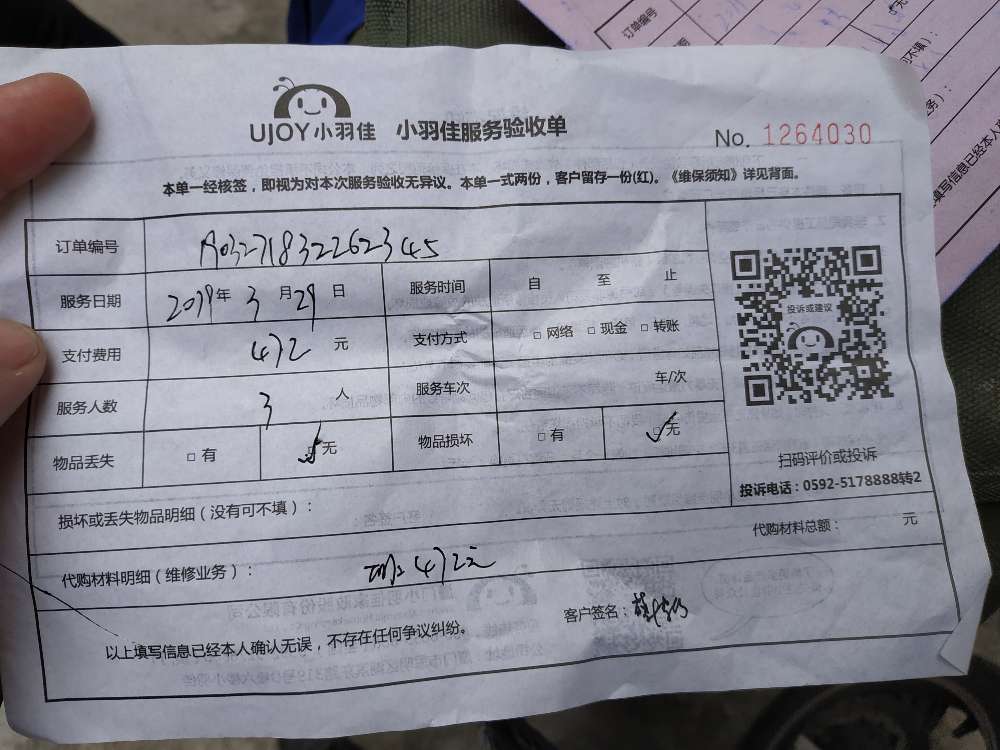 订单编号
UJOY小羽佳 小羽佳服务验收单
No. 1264030
本单一经核签，即视为对本次服务验收无异议。本单一式两份，客户留存一份(红)。《维保须知》详见背面。
订单编号 A03271832262345
服务日期 2019年 3月 29日 服务时间 自 至 止
支付费用 472 元 支付方式 □ 网络 □ 现金 □ 转账
服务人数 3 人 服务车次 车/次
物品丢失 □ 有 ✓ 无 物品损坏 □ 有 ✓ 无
投诉或建议
扫码评价或投诉
投诉电话：0592-5178888转2
损坏或丢失物品明细（没有可不填）：
代购材料总额： 元
代购材料明细（维修业务）： 472元
以上填写信息已经本人确认无误，不存在任何争议纠纷。
客户签名：